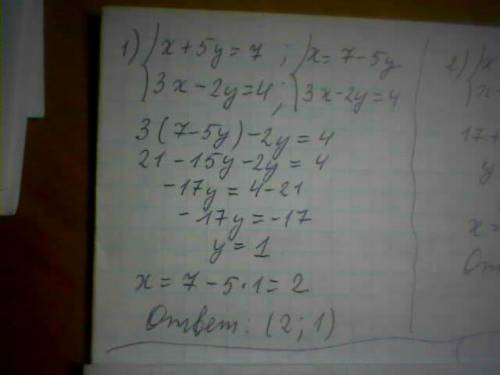 1) { x+5y=7 ; { x=7-5y
{ 3x-2y=4 ; { 3x-2y=4
3(7-5y)-2y=4
21-15y-2y=4
-17y=4-21
-17y=-17
y=1
x=7-5·1=2
Ответ: (2; 1)
2)
17+
y
x=